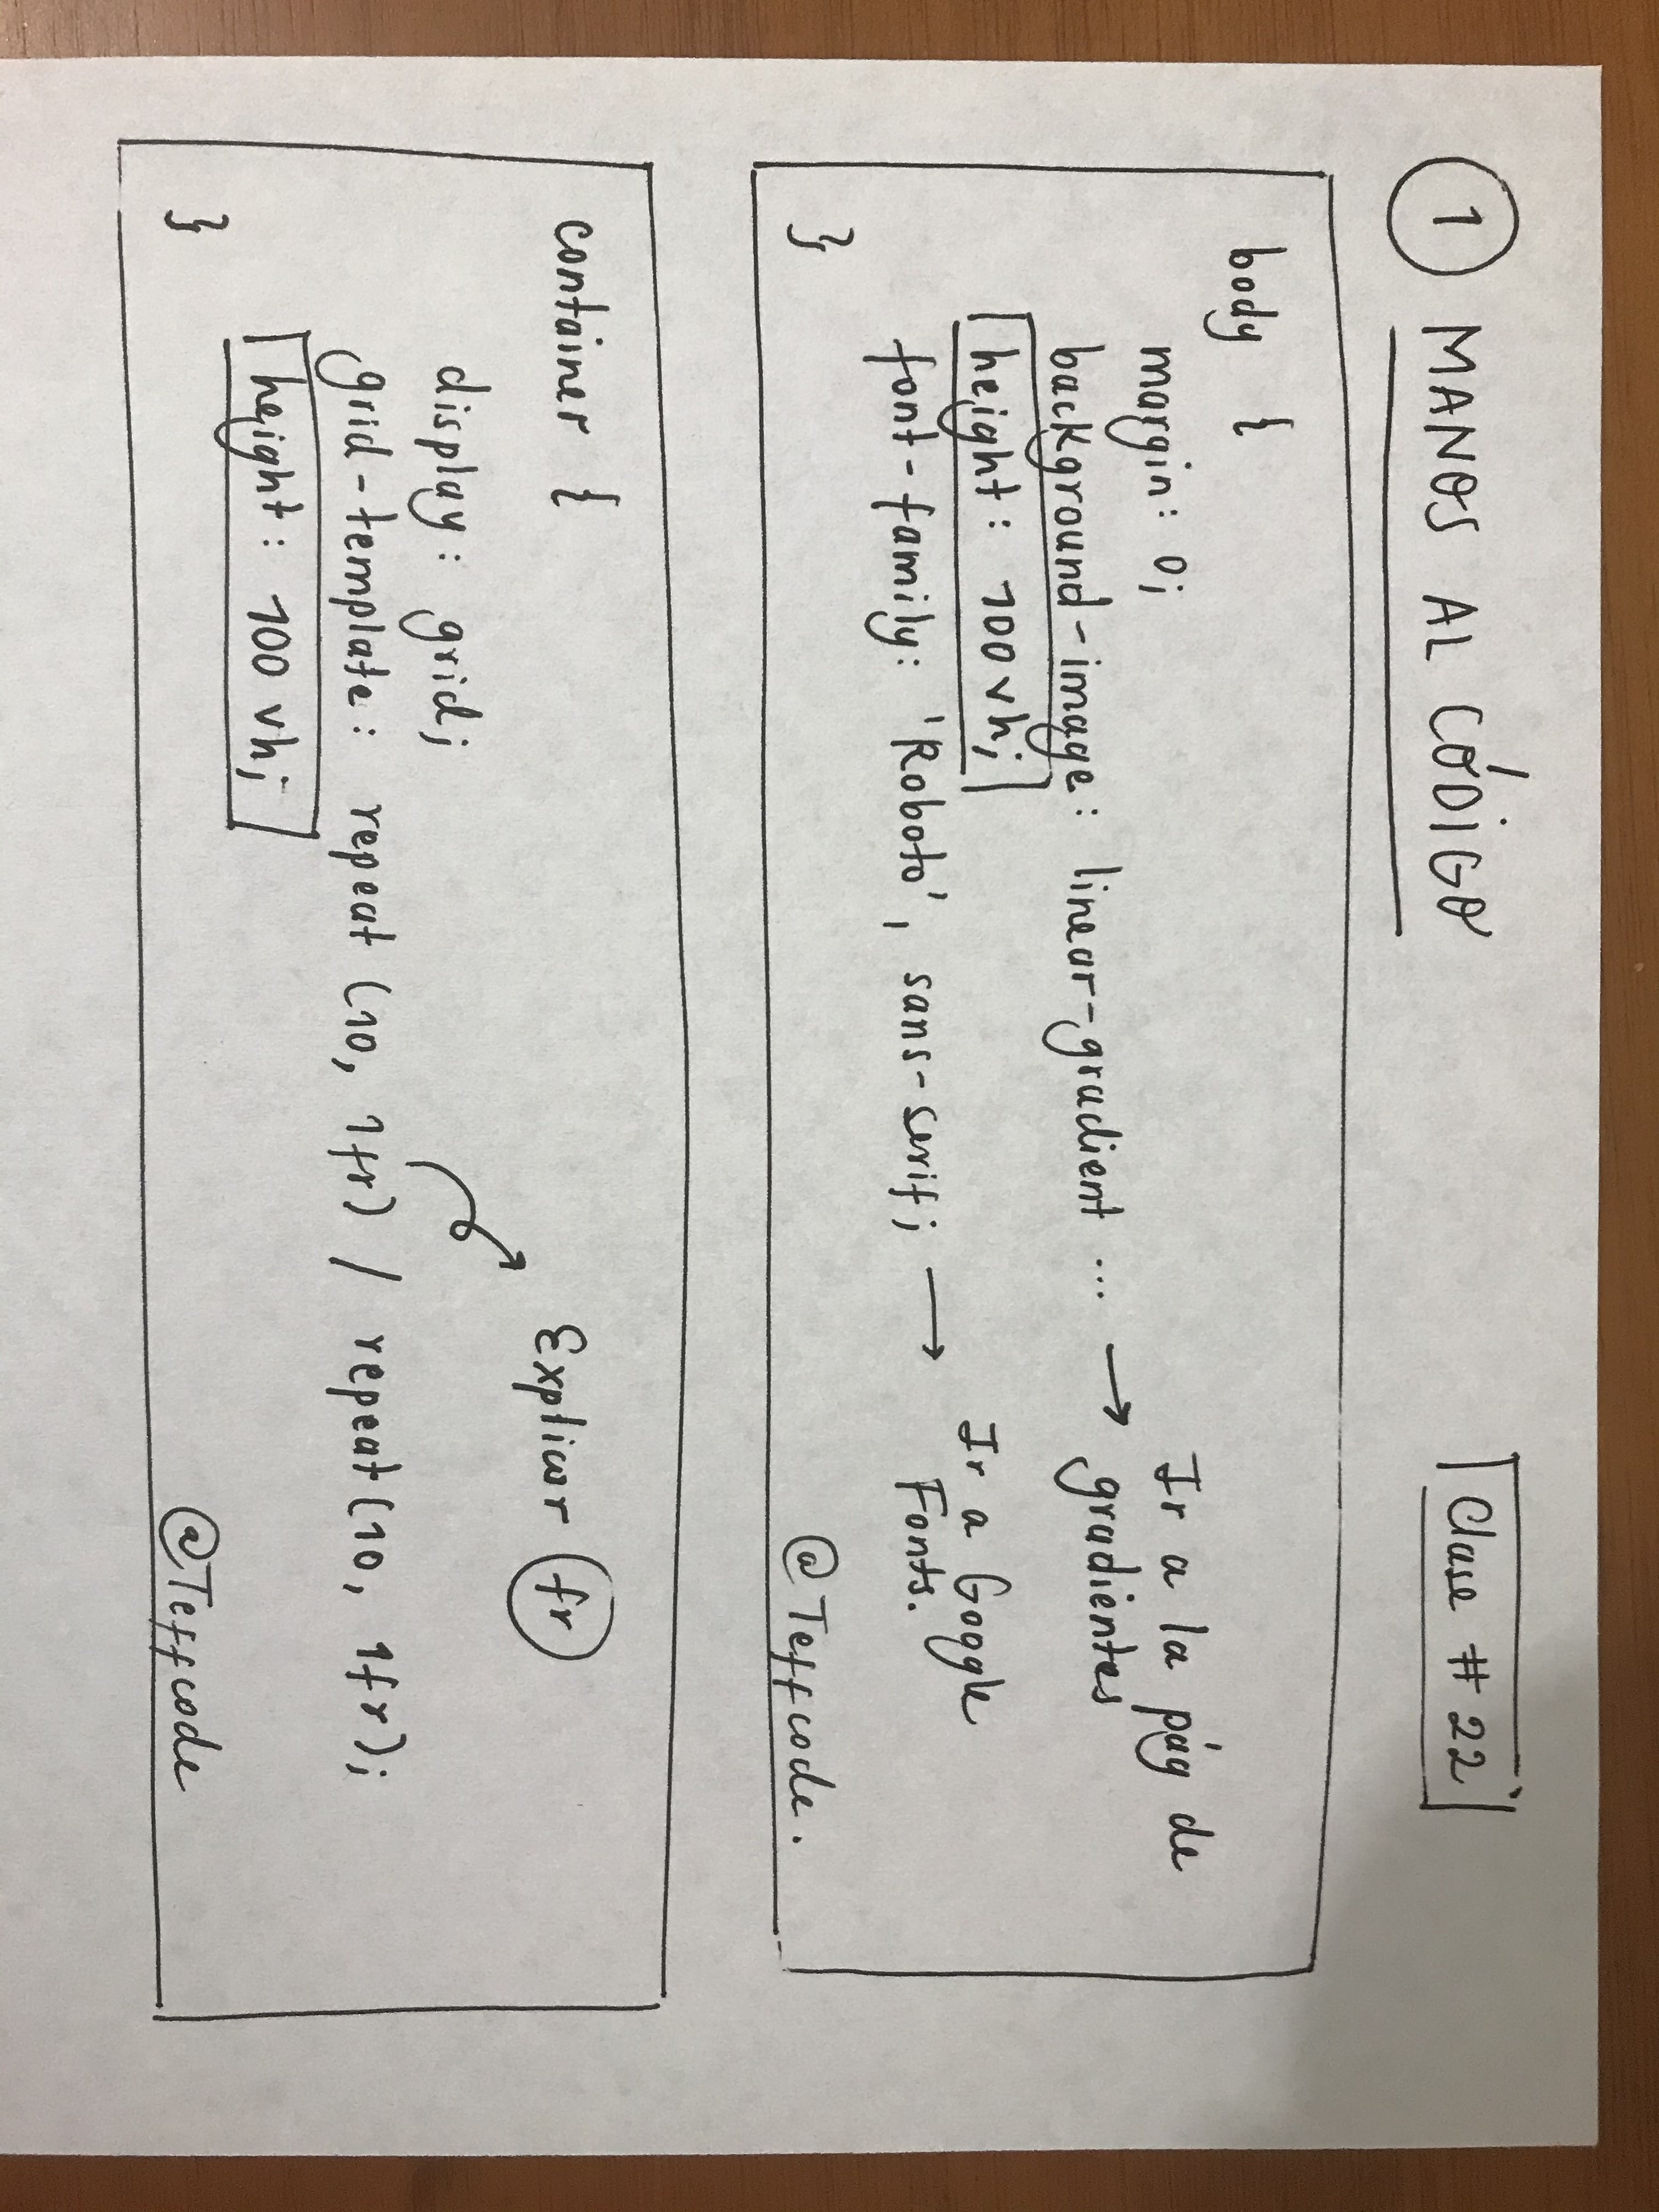 1 MANOS AL CÓDIGO
Clase #22
body {
margin: 0;
background-image: linear-gradient ... → Ir a la pág de
gradientes
height: 100vh;
font-family: 'Roboto', sans-serif; → Ir a Google
Fonts.
}
@Teffcode.
container {
Explicar fr
display: grid;
grid-template: repeat (10, 1fr) / repeat (10, 1fr);
height: 100vh;
}
@Teffcode